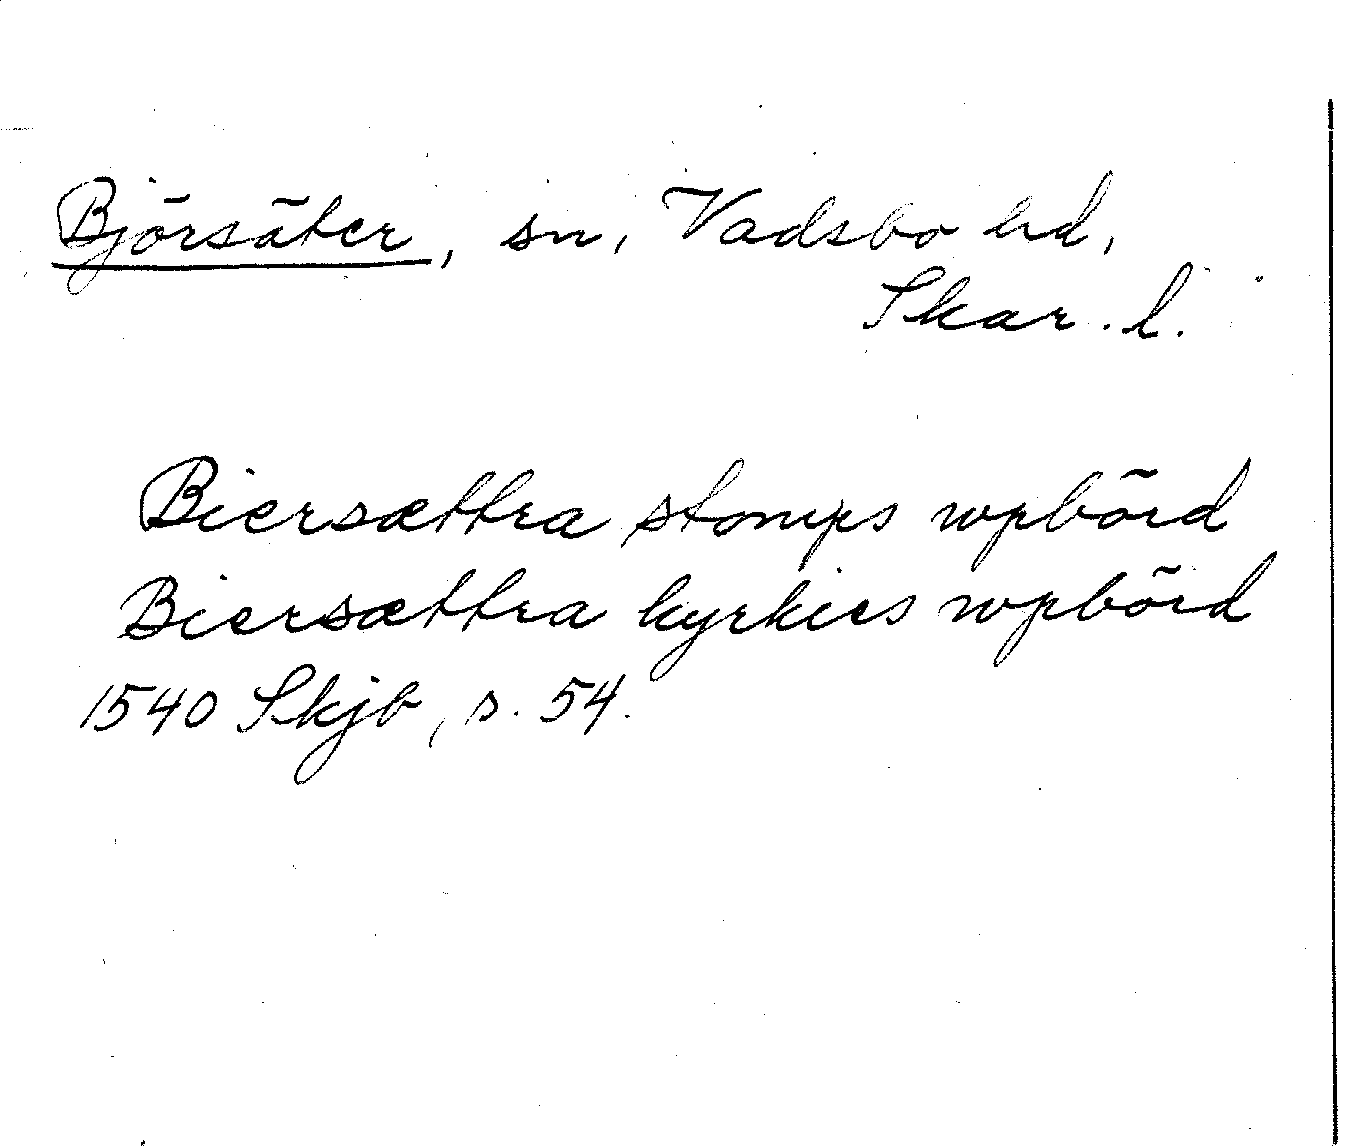 Björsäter, sn, Vadsbo hd,
Skar. l.
Biersættra stomps wpbörd
Biersættra kyrkies wpbörd
1540 Skjb, s. 54.